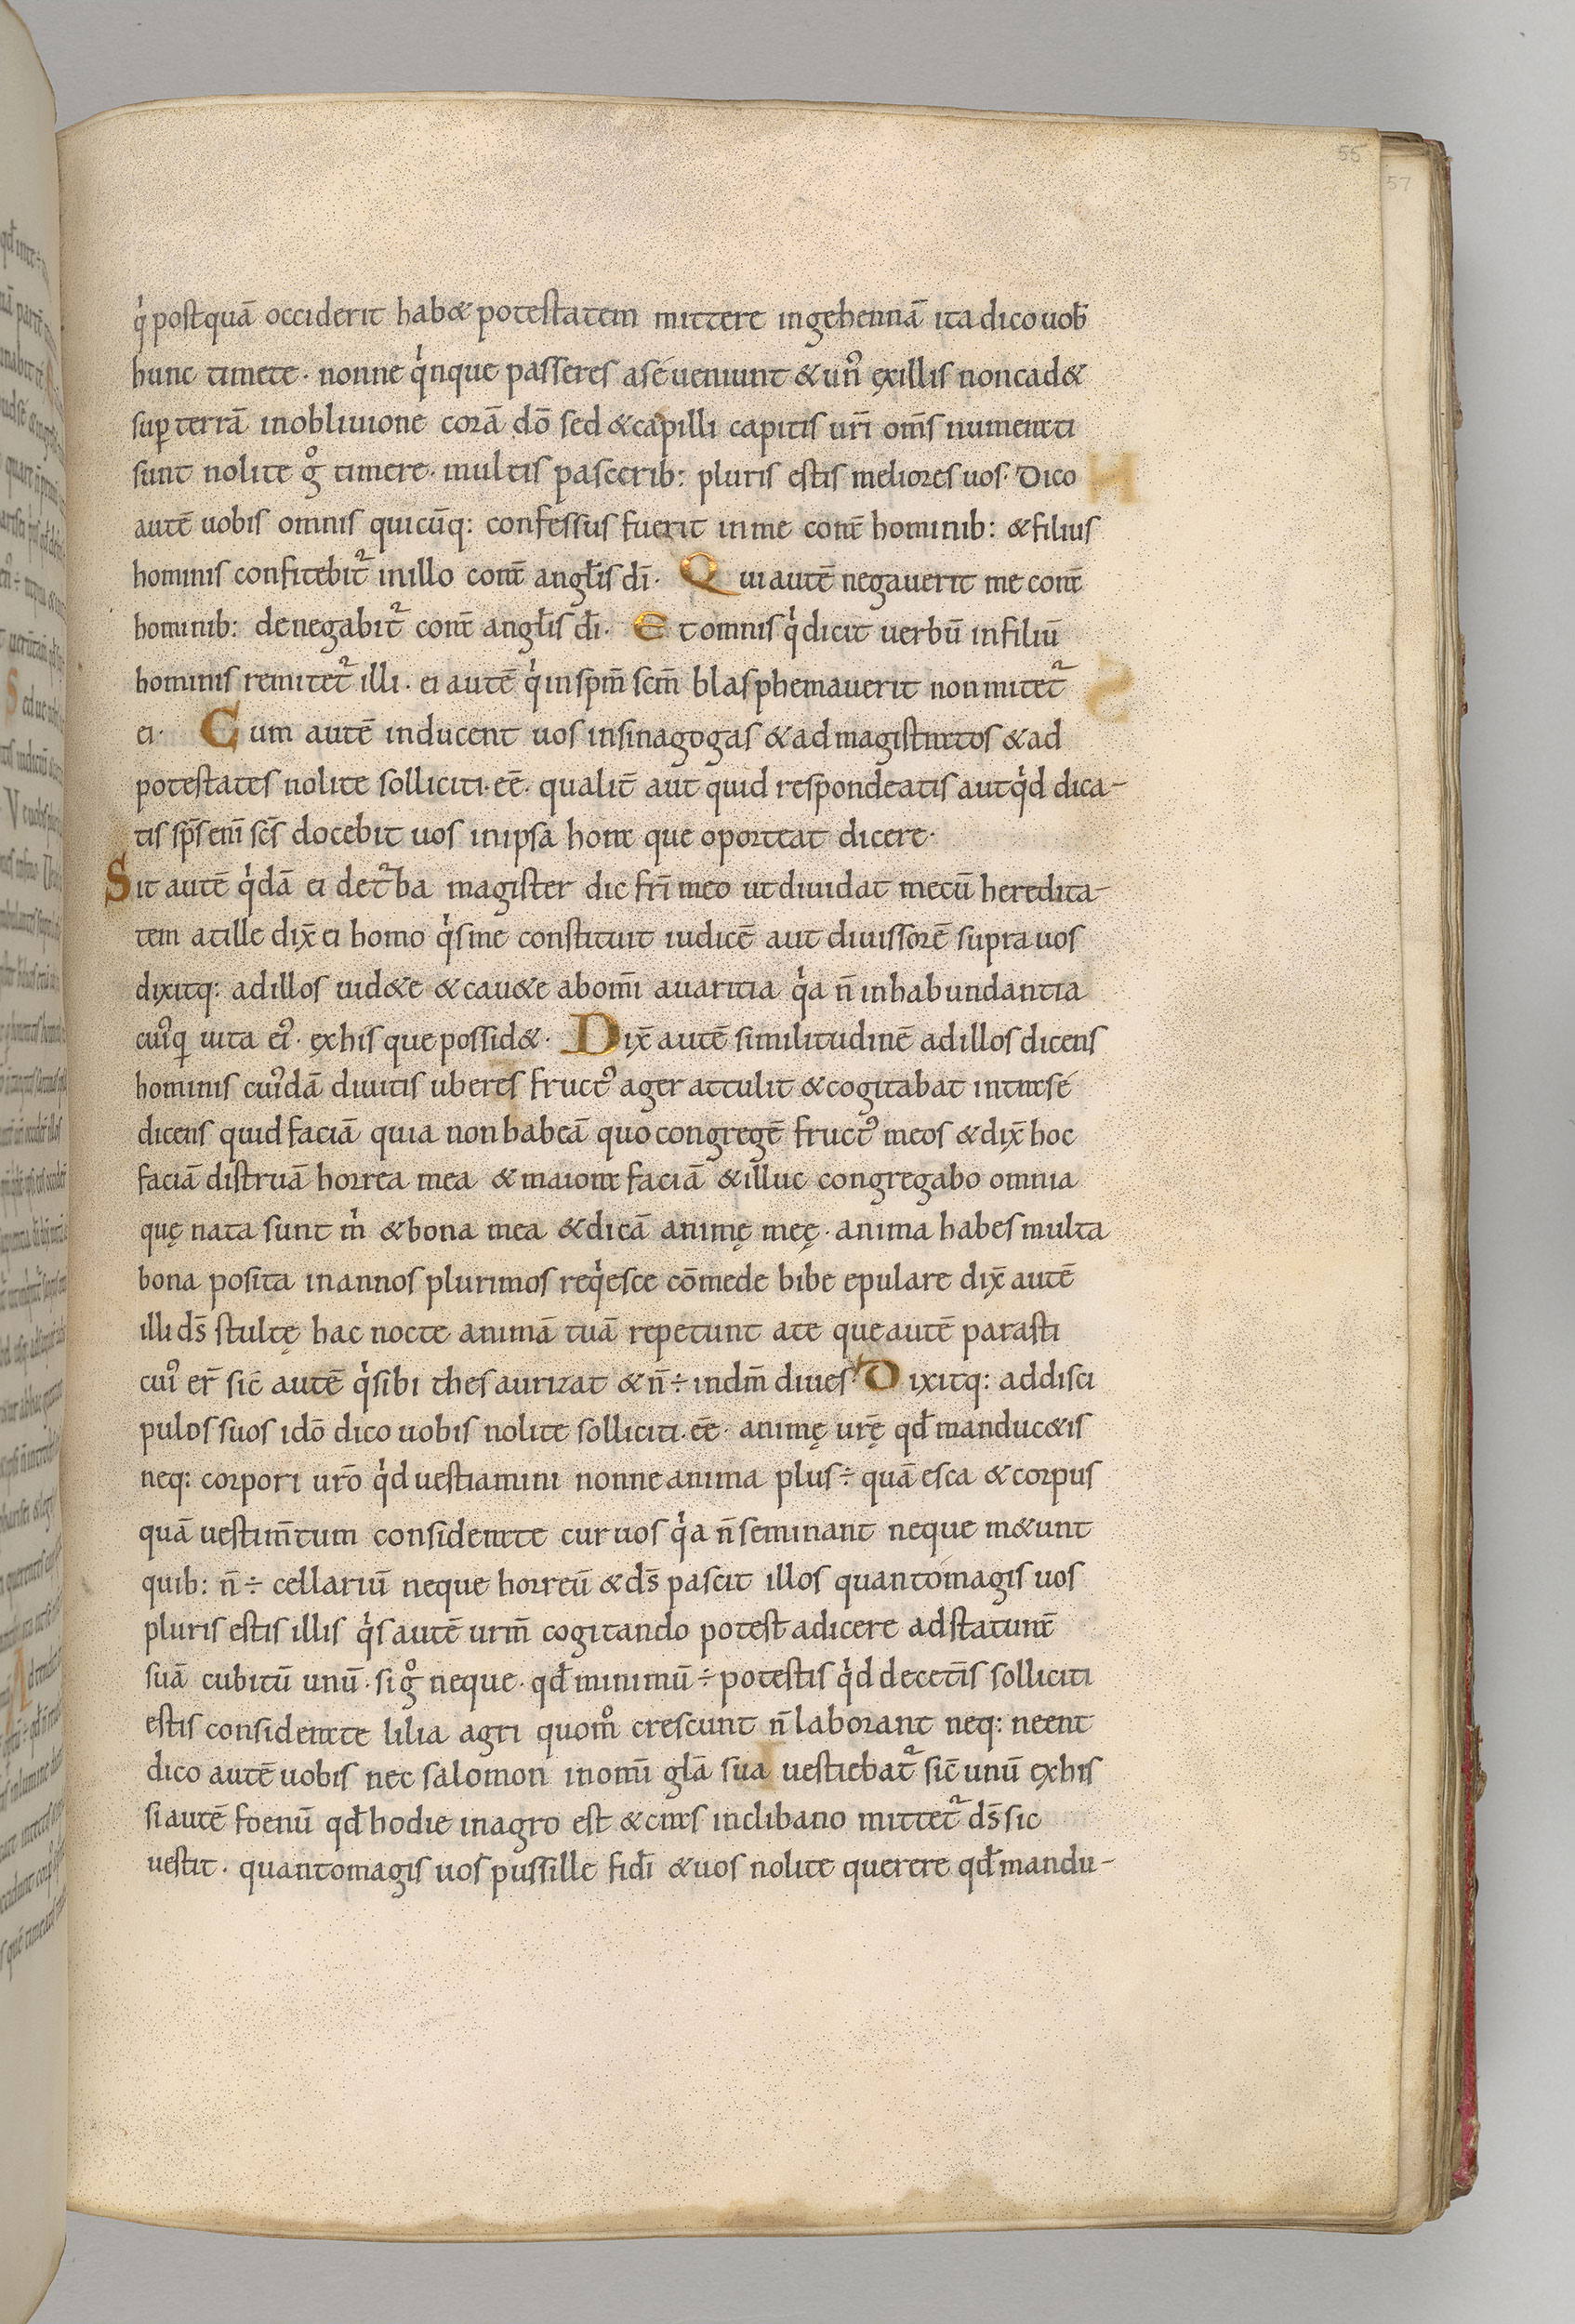 55
57
qͥ postquā occiderit hab& potestatem mittere ingehennā ita dico uob̄
hunc timete · nonne qͥnque passeres asé ueniunt & un᾿ exillis noncad&
sup terrā inobliuione corā dō sed & capilli capitis ur̄i om̄s numerati
sunt nolite gͦ timere · multis passerib: pluris estis meliores uos · Dico
autē uobis omnis quicūq: confessus fuerit inme corā hominib: & filius
hominis confitebit᷑ inillo corā angl̄is dī · Qui autē negauerit me corā
hominib: denegabit᷑ corā angl̄is dī · Et omnis qͥ dicit uerbū infiliū
hominis remitet᷑ illi · ei autē qͥ inspm̄ scm̄ blasphemauerit non mitet᷑
ei · Cum autē inducent uos insinagogas & ad magistratos & ad
potestates nolite solliciti · eē · qualit̄ aut quid respondeatis aut qͥd dica-
tis sp̄s enī scs̄ docebit uos inipsa hora que oporteat dicere ·
Sit autē qͥdā ei det᷑ba magister dic frī meo ut diuidat mecū heredita-
tem atille dix̄ ei homo qͥs me constituit iudicē aut diuissorē supra uos
dixitq: adillos uid&e & cau&e abomī auaritia qͥa n̄ inhabundantia
cui᾿q uita ei᾿ · exhis que possid& · Dix̄ autē similitudinē adillos dicens
hominis cui᾿dā diuitis uberes fruct᾿ ager attulit & cogitabat intrasé
dicens quid faciā quia non habeā quo congregē fruct᾿ meos & dix̄ hoc
faciā distruā horrea mea & maiora faciā & illuc congregabo omnia
quę nata sunt mͥ & bona mea & dicā animę meę · anima habes multa
bona posita inannos plurimos reqͥesce cōmede bibe epulare dix̄ autē
illi ds̄ stultę hac nocte animā tuā repetunt ate que autē parasti
cui᾿ er̄ sic̄ autē qͥ sibi thesaurizat & n̄ ÷ indm̄ diues · Dixitq: addisci
pulos suos idō dico uobis nolite solliciti · eē · animę urę̄ qd̄ manduc&is
neq: corpori ur̄o qͥd uestiamini nonne anima plus ÷ quā esca & corpus
quā uestim̄tum considerate curuos qͥa n̄ seminant neque m&unt
quib: n̄ ÷ cellariū neque horreū & ds̄ pascit illos quantomagis uos
pluris estis illis qͥs autē urm̄ cogitando potest adicere adstaturā
suā cubitū unū · si gͦ neque · qd̄ minimū ÷ potestis qͥd decet̄is solliciti
estis considerate lilia agri quom̊ crescunt n̄ laborant neq: neent
dico autē uobis nec salomon inomī glā sua uestiebat᷑ sic̄ unū exhis
si autē foenū qd̄ hodie inagro est & cras inclibano mittet᷑ ds̄ sic
uestit · quantomagis uos pussille fidī & uos nolite querere qd̄ mandu-